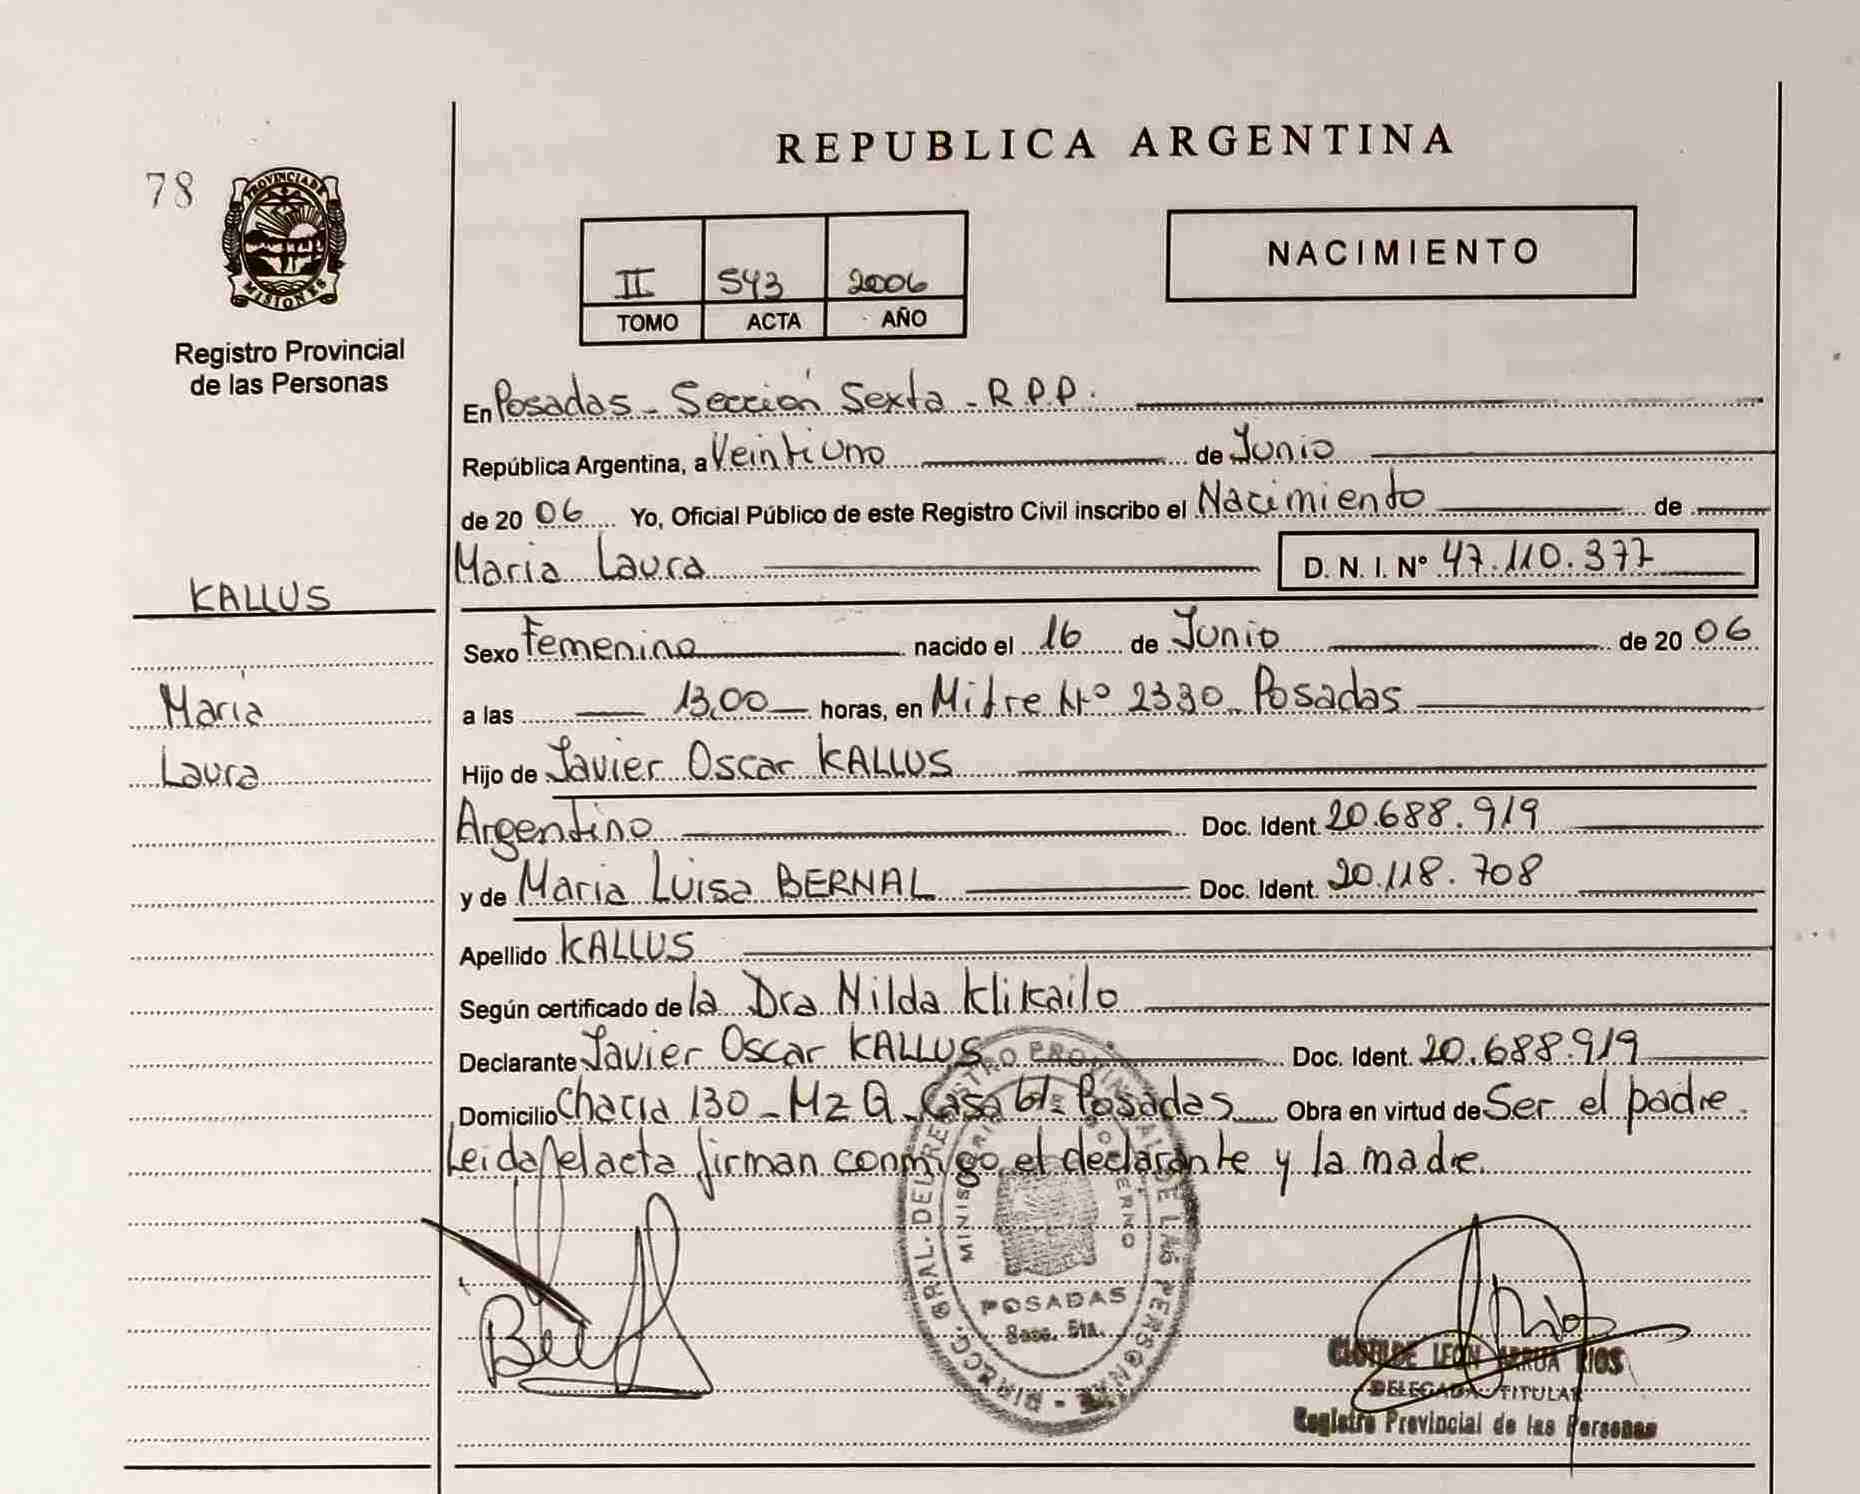 REPUBLICA ARGENTINA
78
PROVINCIA DE
MISIONES
Registro Provincial
de las Personas
II 543 2006
TOMO ACTA AÑO
NACIMIENTO
En Posadas - Sección Sexta - R.P.P.
República Argentina, a Veintiuno de Junio
de 20 06 Yo, Oficial Público de este Registro Civil inscribo el Nacimiento de
Maria Laura D. N. I. Nº 47.110.377
KALLUS
Sexo Femenino nacido el 16 de Junio de 20 06
Maria
a las 13,00 horas, en Mitre Nº 2330 Posadas
Laura
Hijo de Javier Oscar KALLUS
Argentino Doc. Ident. 20.688.919
y de Maria Luisa BERNAL Doc. Ident. 20.118.708
Apellido KALLUS
Según certificado de la Dra Nilda Klikailo
Declarante Javier Oscar KALLUS Doc. Ident. 20.688.919
Domicilio Chacra 130 - Mz Q - Casa Posadas Obra en virtud de Ser el padre.
Leida el acta firman conmigo el declarante y la madre.
DIRECC. GRAL. DEL REGISTRO PROVINCIAL DE LAS PERSONAS
MINISTERIO GOBIERNO
POSADAS
Secc. 6ta.
CLOTILDE LEON ARRUA RIOS
DELEGADA TITULAR
Registro Provincial de las Personas